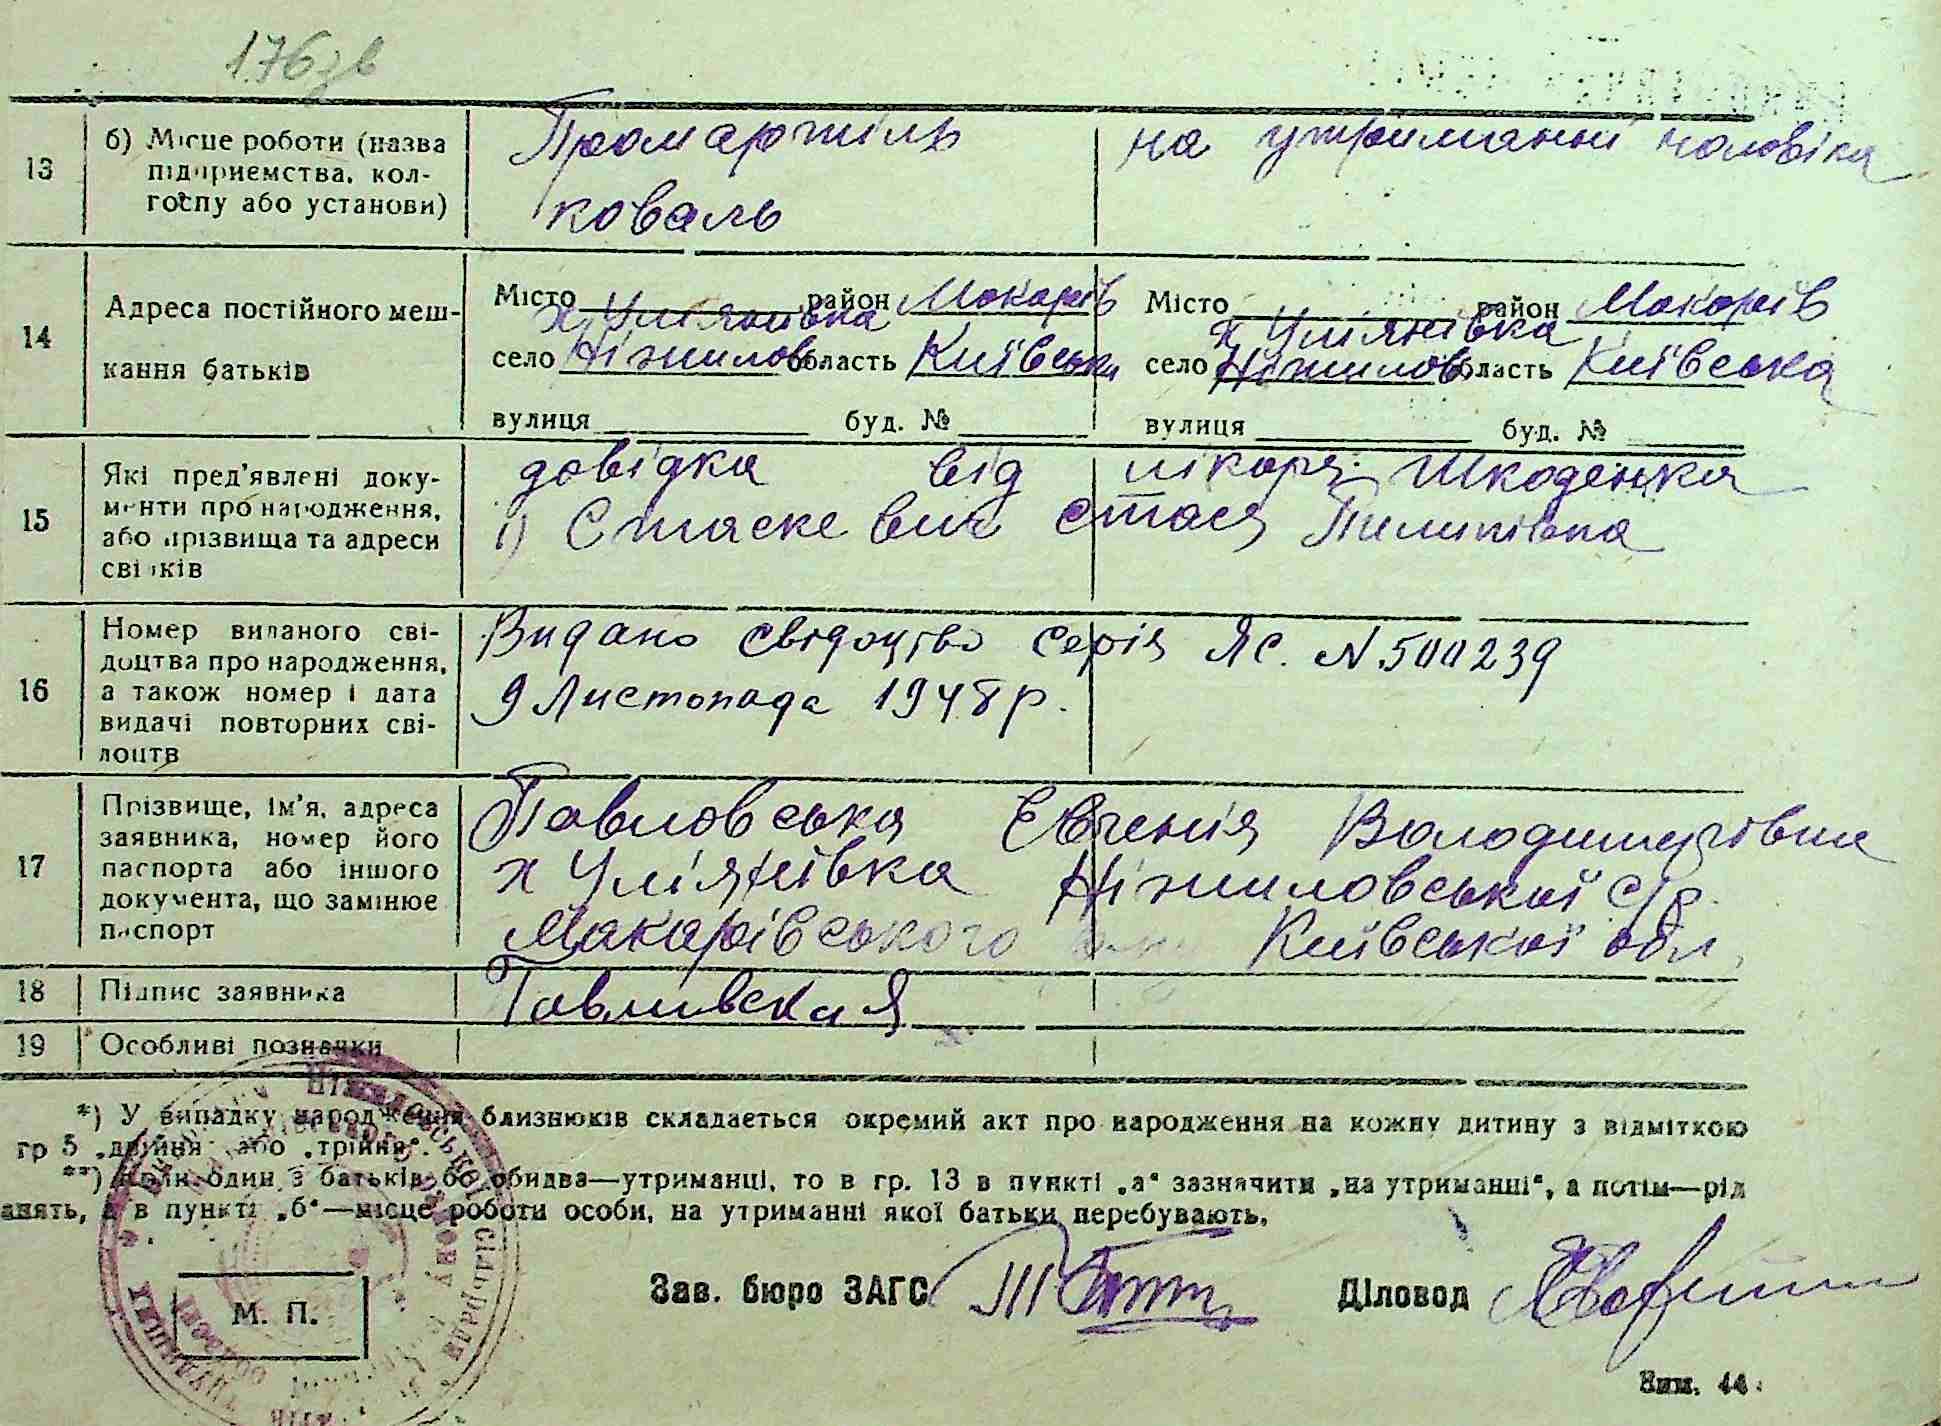 176 зв
13 б) Місце роботи (назва підприемства, колгоспу або установи) Промартіль коваль на утриманні чоловіка
14 Адреса постійного мешкання батьків
Місто район Макарів Місто район Макарів
х Улянівка х Улянівка
село Ніжилов. область Київська село Ніжилов. область Київська
вулиця буд. № вулиця буд. №
15 Які пред'явлені документи про народження, або прізвища та адреси свідків
довідка від лікаря Шкоденка
1) Стаскевич Стася Пилипівна
16 Номер виданого свідоцтва про народження, а також номер і дата видачі повторних свідоцтв
Видано свідоцтво серія ЯС. N 500239
9 Листопада 1948 р.
17 Прізвище, ім'я, адреса заявника, номер його паспорта або іншого документа, що замінює паспорт
Павловська Євгенія Володимирівна
х Улянівка Ніжиловської с/р.
Макарівського Київської обл.
18 Підпис заявника Павливская
19 Особливі позначки
*) У випадку народження близнюків складається окремий акт про народження на кожну дитину з відміткою
гр 5 „двійня" або „трійня".
**) Коли один з батьків бо обидва—утриманці, то в гр. 13 в пункті „а" зазначити „на утриманні", а потім—рід
анять, а в пункті „б"—місце роботи особи, на утриманні якої батьки перебувають.
Зав. бюро ЗАГС Діловод
М. П.
Зим. 44